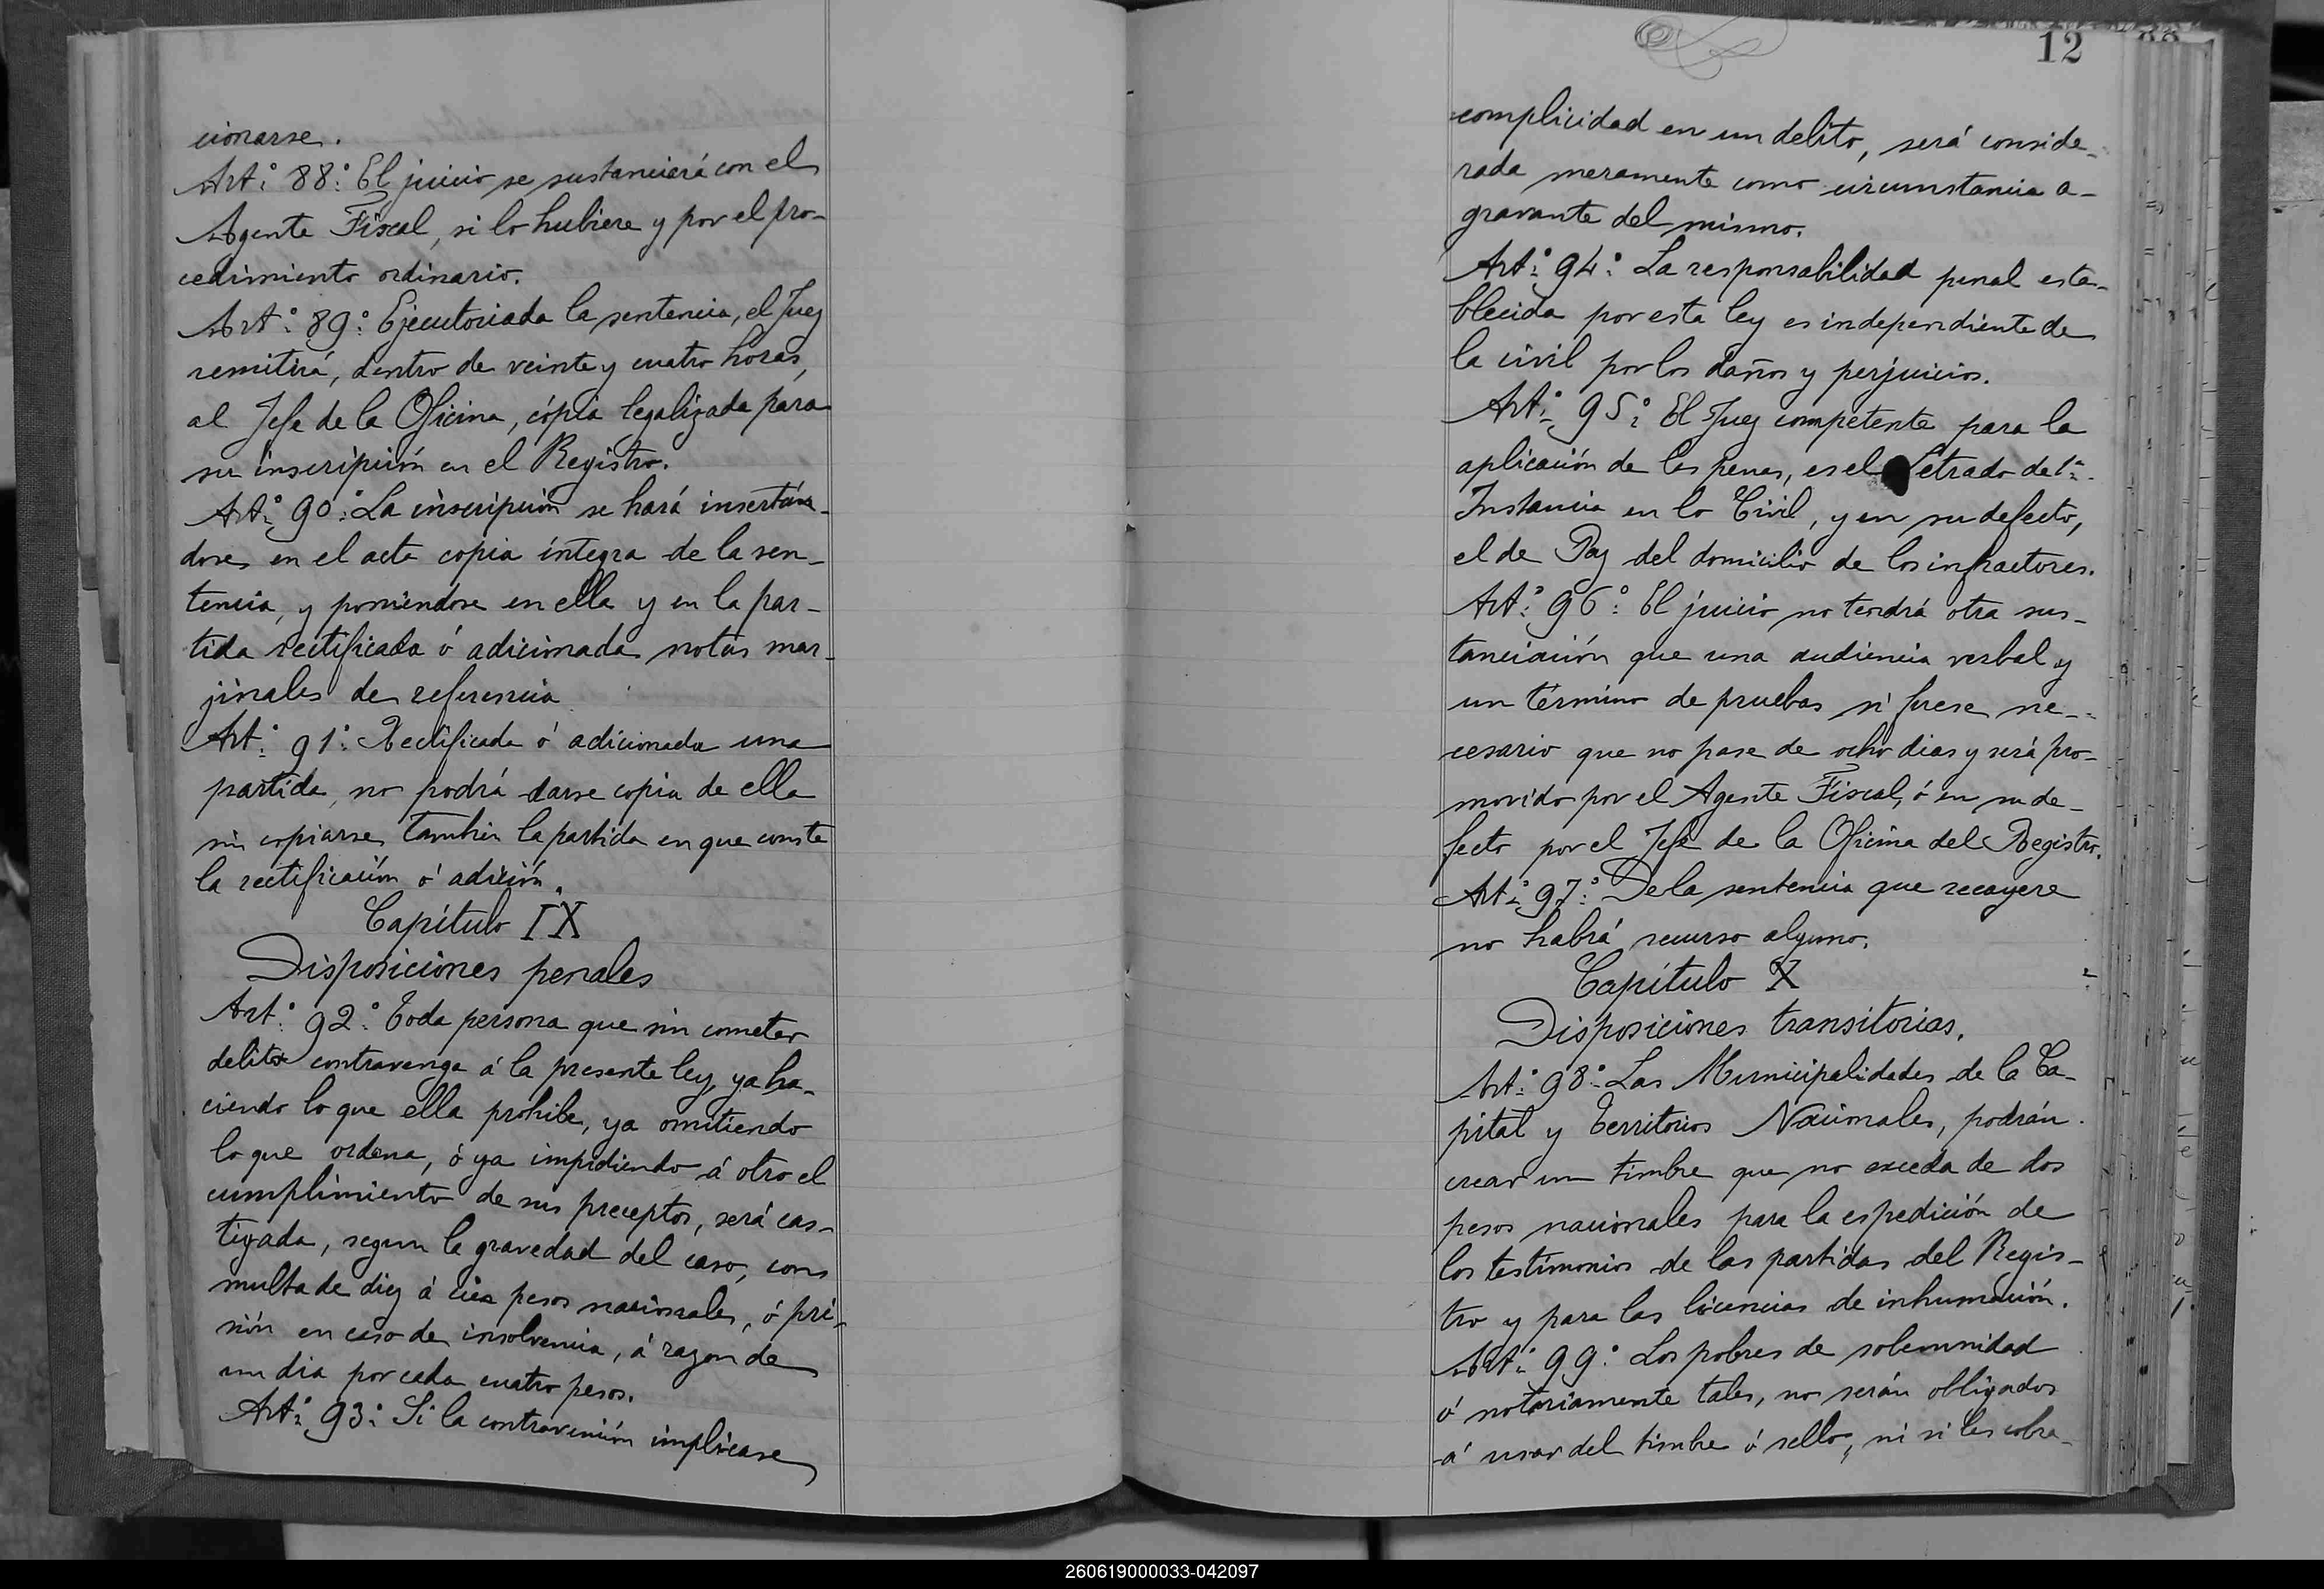 cionarse.
Art.º 88.º El juicio se sustanciará con el
Agente Fiscal, si lo hubiere y por el pro-
cedimiento ordinario.
Art.º 89.º Ejecutoriada la sentencia, el Juez
remitirá, dentro de veinte y cuatro horas,
al Jefe de la Oficina, cópia legalizada para
su inscripción en el Registro.
Art.º 90.º La inscripción se hará insertán-
dose en el acta copia íntegra de la sen-
tencia, y poniendose en ella y en la par-
tida rectificada ó adicionada notas mar-
jinales de referencia
Art.º 91.º Rectificada ó adicionada una
partida, no podrá darse copia de ella
sin copiarse tambien la partida en que conste
la rectificación ó adición.
Capítulo IX
Disposiciones penales
Art.º 92.º Toda persona que sin cometer
delito contravenga á la presente ley, ya ha-
ciendo lo que ella prohibe, ya omitiendo
lo que ordena, ó ya impidiendo á otro el
cumplimiento de sus preceptos, será cas-
tigada, segun la gravedad del caso, con
multa de diez á cien pesos nacionales, ó pri-
sión en caso de insolvencia, á razon de
un dia por cada cuatro pesos.
Art.º 93.º Si la contravención implicase
12
complicidad en un delito, será conside-
rada meramente como circunstancia a-
gravante del mismo.
Art.º 94.º La responsabilidad penal esta-
blecida por esta ley es independiente de
la civil por los daños y perjuicios.
Art.º 95.º El Juez competente para la
aplicación de las penas, es el Letrado de 1.ª
Instancia en lo Civil, y en su defecto,
el de Paz del domicilio de los infractores.
Art.º 96.º El juicio no tendrá otra sus-
tanciación que una audiencia verbal y
un término de pruebas si fuese ne-
cesario que no pase de ocho dias y será pro-
movido por el Agente Fiscal, ó en su de-
fecto por el Jefe de la Oficina del Registro.
Art.º 97.º De la sentencia que recayere
no habrá recurso alguno.
Capítulo X
Disposiciones transitorias.
Art.º 98.º Las Municipalidades de la Ca-
pital y Territorios Nacionales, podrán
crear un timbre que no exceda de dos
pesos nacionales para la espedición de
los testimonios de las partidas del Regis-
tro y para las licencias de inhumación.
Art.º 99.º Los pobres de solemnidad
ó notoriamente tales, no serán obligados
á usar del timbre ó sello, ni si les cobra-
260619000033-042097